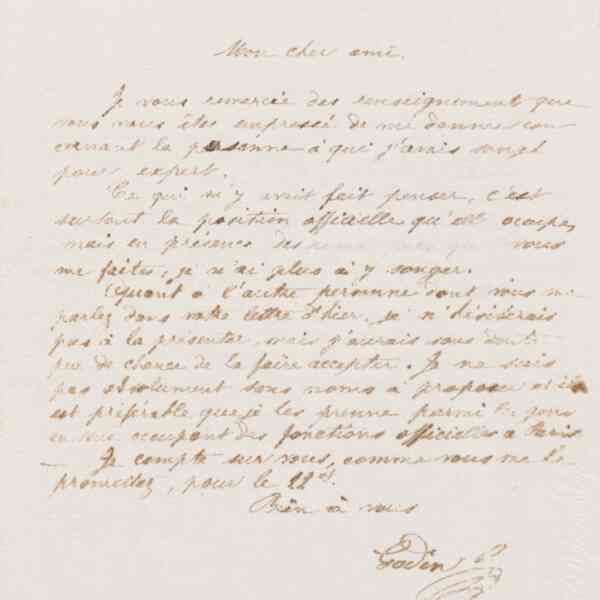 Mon cher ami.
Je vous remercie des renseignement que
vous vous êtes empressé de me donner con
cernant la personne à qui j'avais songé
pour expert.
Ce qui m'y avait fait penser, c'est
surtout la position officielle qu'elle occupe,
mais en présence des vous
me faites, je n'ai plus à y songer.
Quant à l'autre personne dont vous me
parlez dans votre lettre d'hier, je n'hésiterais
pas à la présenter, mais j'aurais sans doute
peu de chance de la faire accepter. Je ne suis
pas absolument sans noms à proposer et il
est préférable que je les prenne parmi les gens
occupant des fonctions officielles à Paris
Je compte sur vous, comme vous me le
promettez, pour le 22
Bien à vous
Godin